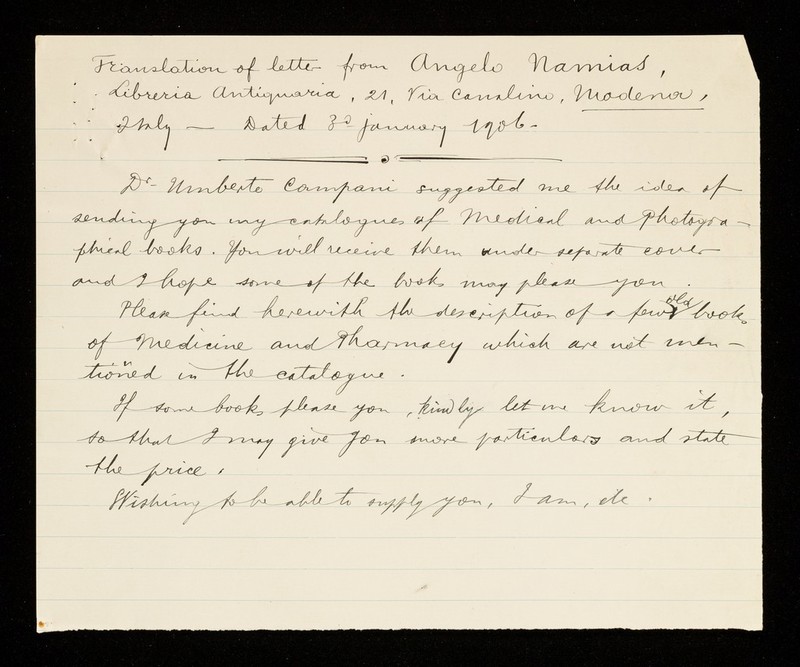 Translation of letter from Angelo Namias,
Libreria Antiquaria, 21, Via Canalino, Modena,
Italy — Dated 3d january 1906 -
Dr. Umberto Campani suggested me the idea of
sending you my catalogues of Medical and Photogra-
phical books. You will receive them under separate cover
and I hope some of the books may please you.
Please find herewith the description of a few old books
of Medicine and Pharmacy which are not men-
tioned in the catalogue.
If some books please you, kindly let me know it,
so that I may give you more particulars and state
the price.
Wishing to be able to supply you, I am, etc.